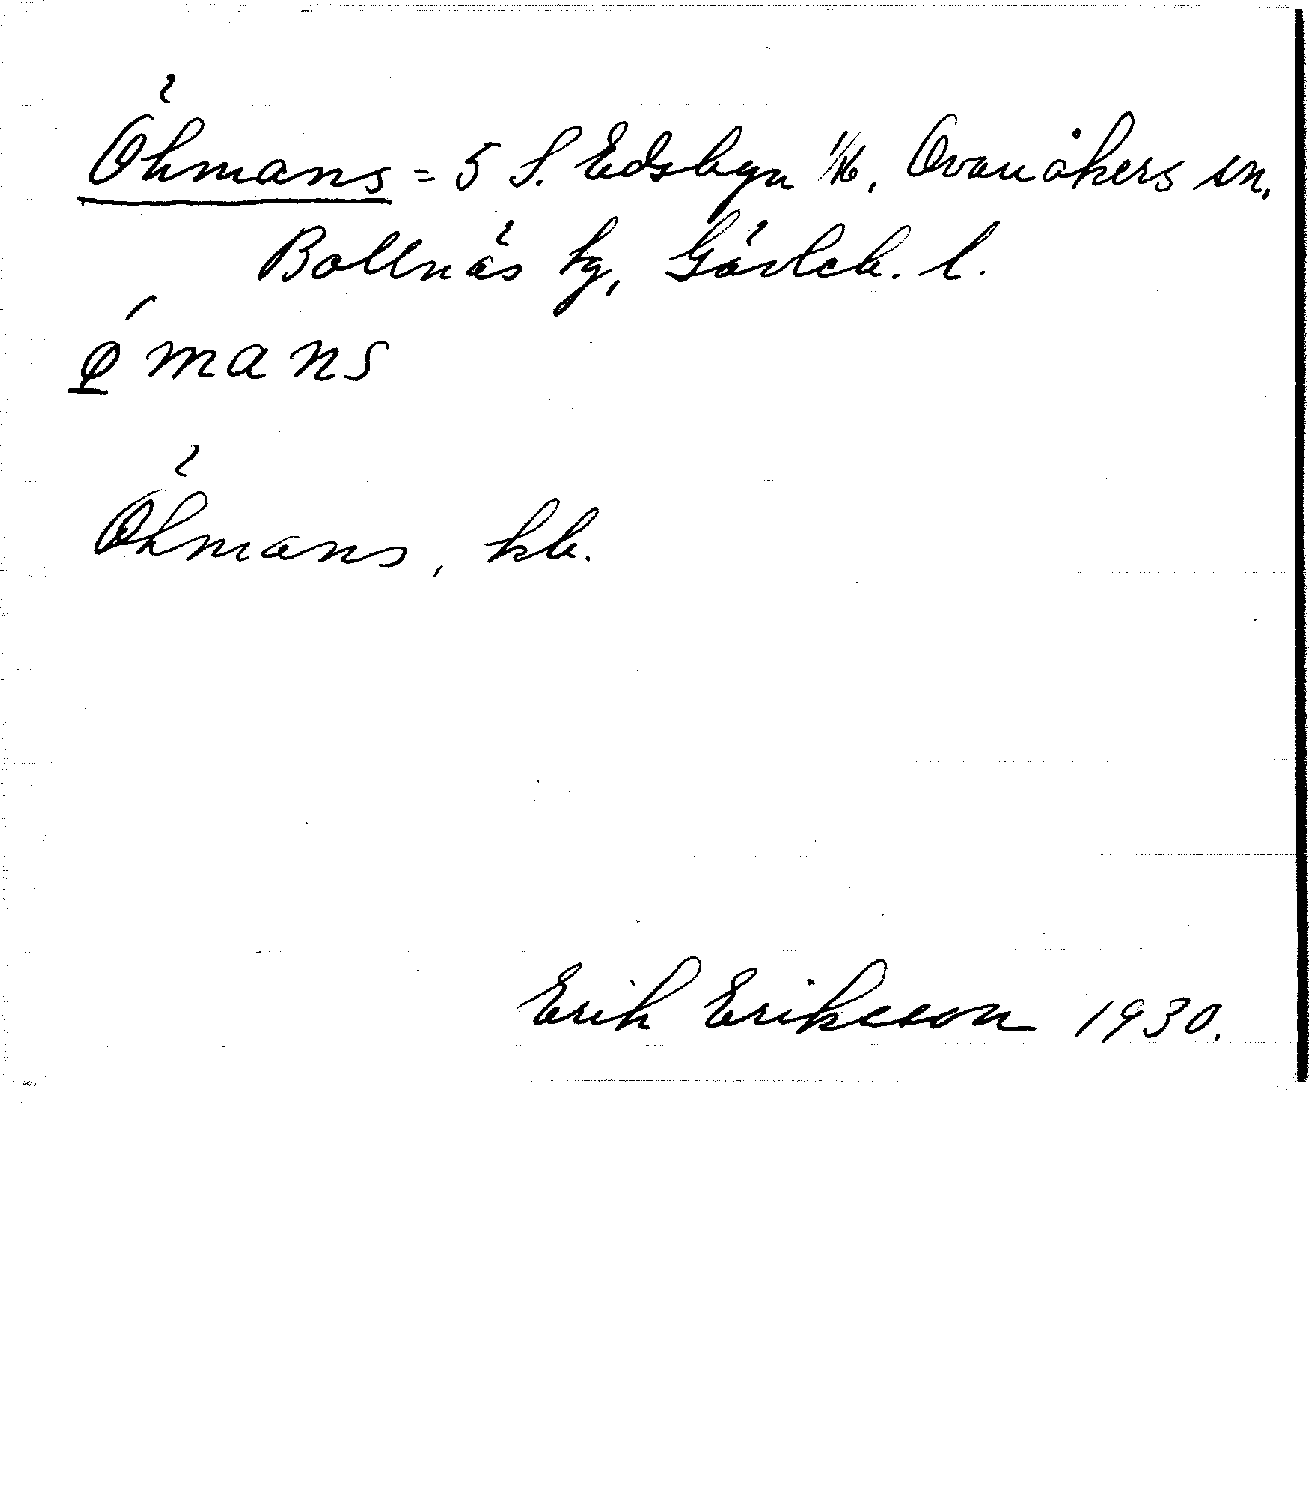 Öhmans = 5 S. Edsbyn 1/16, Ovanåkers sn,
Bollnäs tg, Gävleb. l.
mans
Öhmans, kb.
Erik Eriksson 1930.